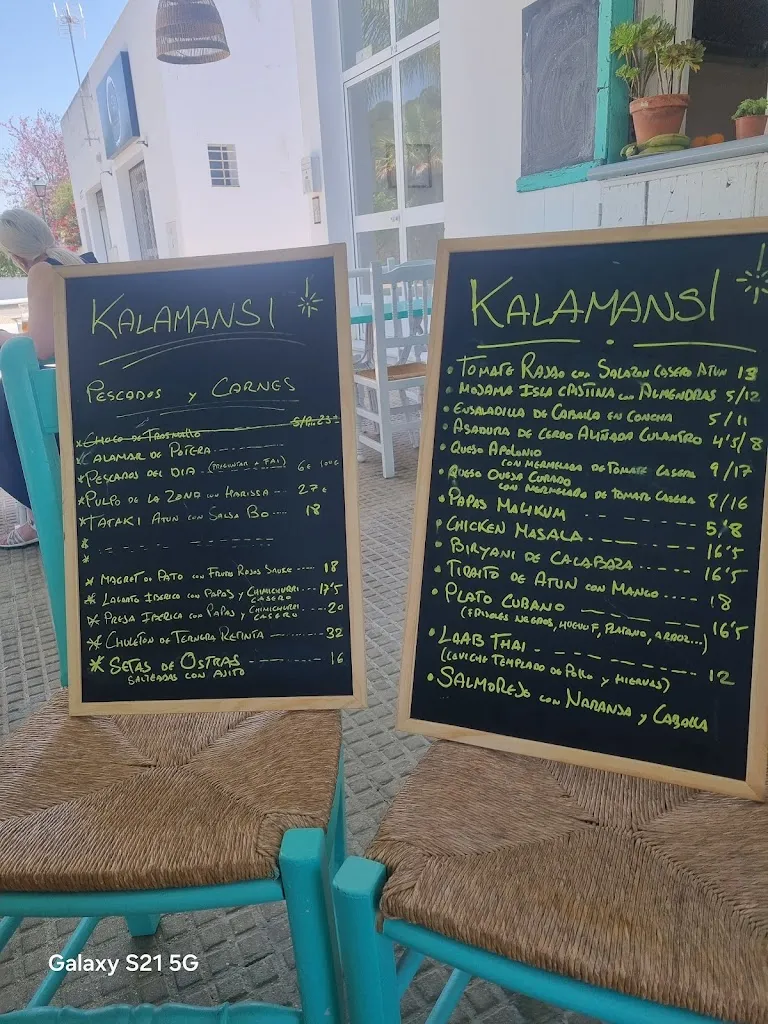 KALAMANSI
PESCADOS Y CARNES
CHOCO DE TRASMALLO S/P. 23
CALAMAR DE POTERA
PESCADOS DEL DIA (PREGUNTAR + FAI) 6€ 100G
PULPO DE LA ZONA CON HARISSA 27€
TATAKI ATUN CON SALSA BO 18
MAGRET DE PATO CON FRUTOS ROJOS SAUCE 18
LAGARTO IBERICO CON PAPAS Y CHIMICHURRI 17'5
CASERO
PRESA IBERICA CON PAPAS Y CHIMICHURRI 20
CASERO
CHULETON DE TERNERA RETINTA 32
SETAS DE OSTRAS 16
SALTEADAS CON AJITO
KALAMANSI
TOMATE ROSAO CON SALAZON CASERO ATUN 13
MOJAMA ISLA CRISTINA CON ALMENDRAS 5/12
ENSALADILLA DE CABALLA EN CONCHA 5/11
ASADURA DE CERDO ALIÑADA CULANTRO 4'5/8
QUESO APOLONIO
CON MERMELADA DE TOMATE CASERA 9/17
QUESO OVEJA CURADO
CON MERMELADA DE TOMATE CASERA 8/16
PAPAS MALIKUM 5/8
CHICKEN MASALA 16'5
BIRYANI DE CALABAZA 16'5
TIRAITO DE ATUN CON MANGO 18
PLATO CUBANO 16'5
(FRIJOLES NEGROS, HUEVO F, PLATANO, ARROZ...)
LAAB THAI 12
(CEVICHE TEMPLADO DE POLLO Y HIERVAS)
SALMOREJO CON NARANJA Y CABALLA
Galaxy S21 5G